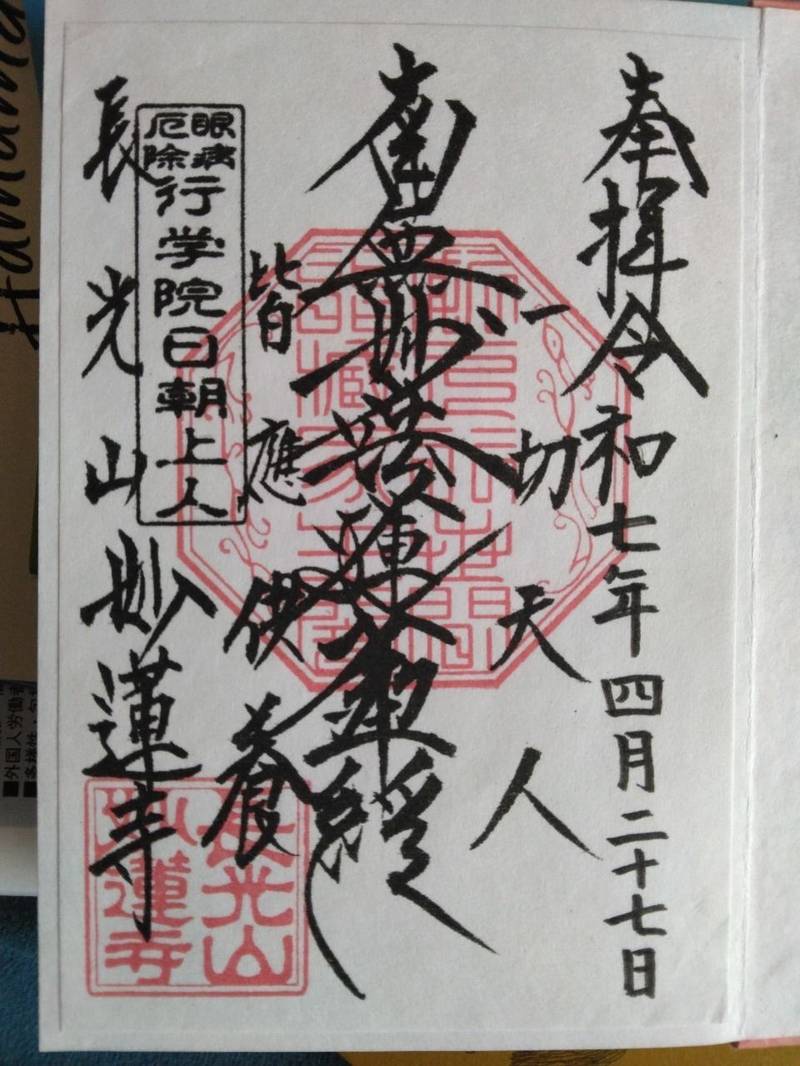 奉拝令和七年四月二十七日
一切天人
南無妙法蓮華經
皆應供養
眼病
厄除
行学院日朝上人
長光山妙蓮寺
長光山
妙蓮寺
■外国人労働